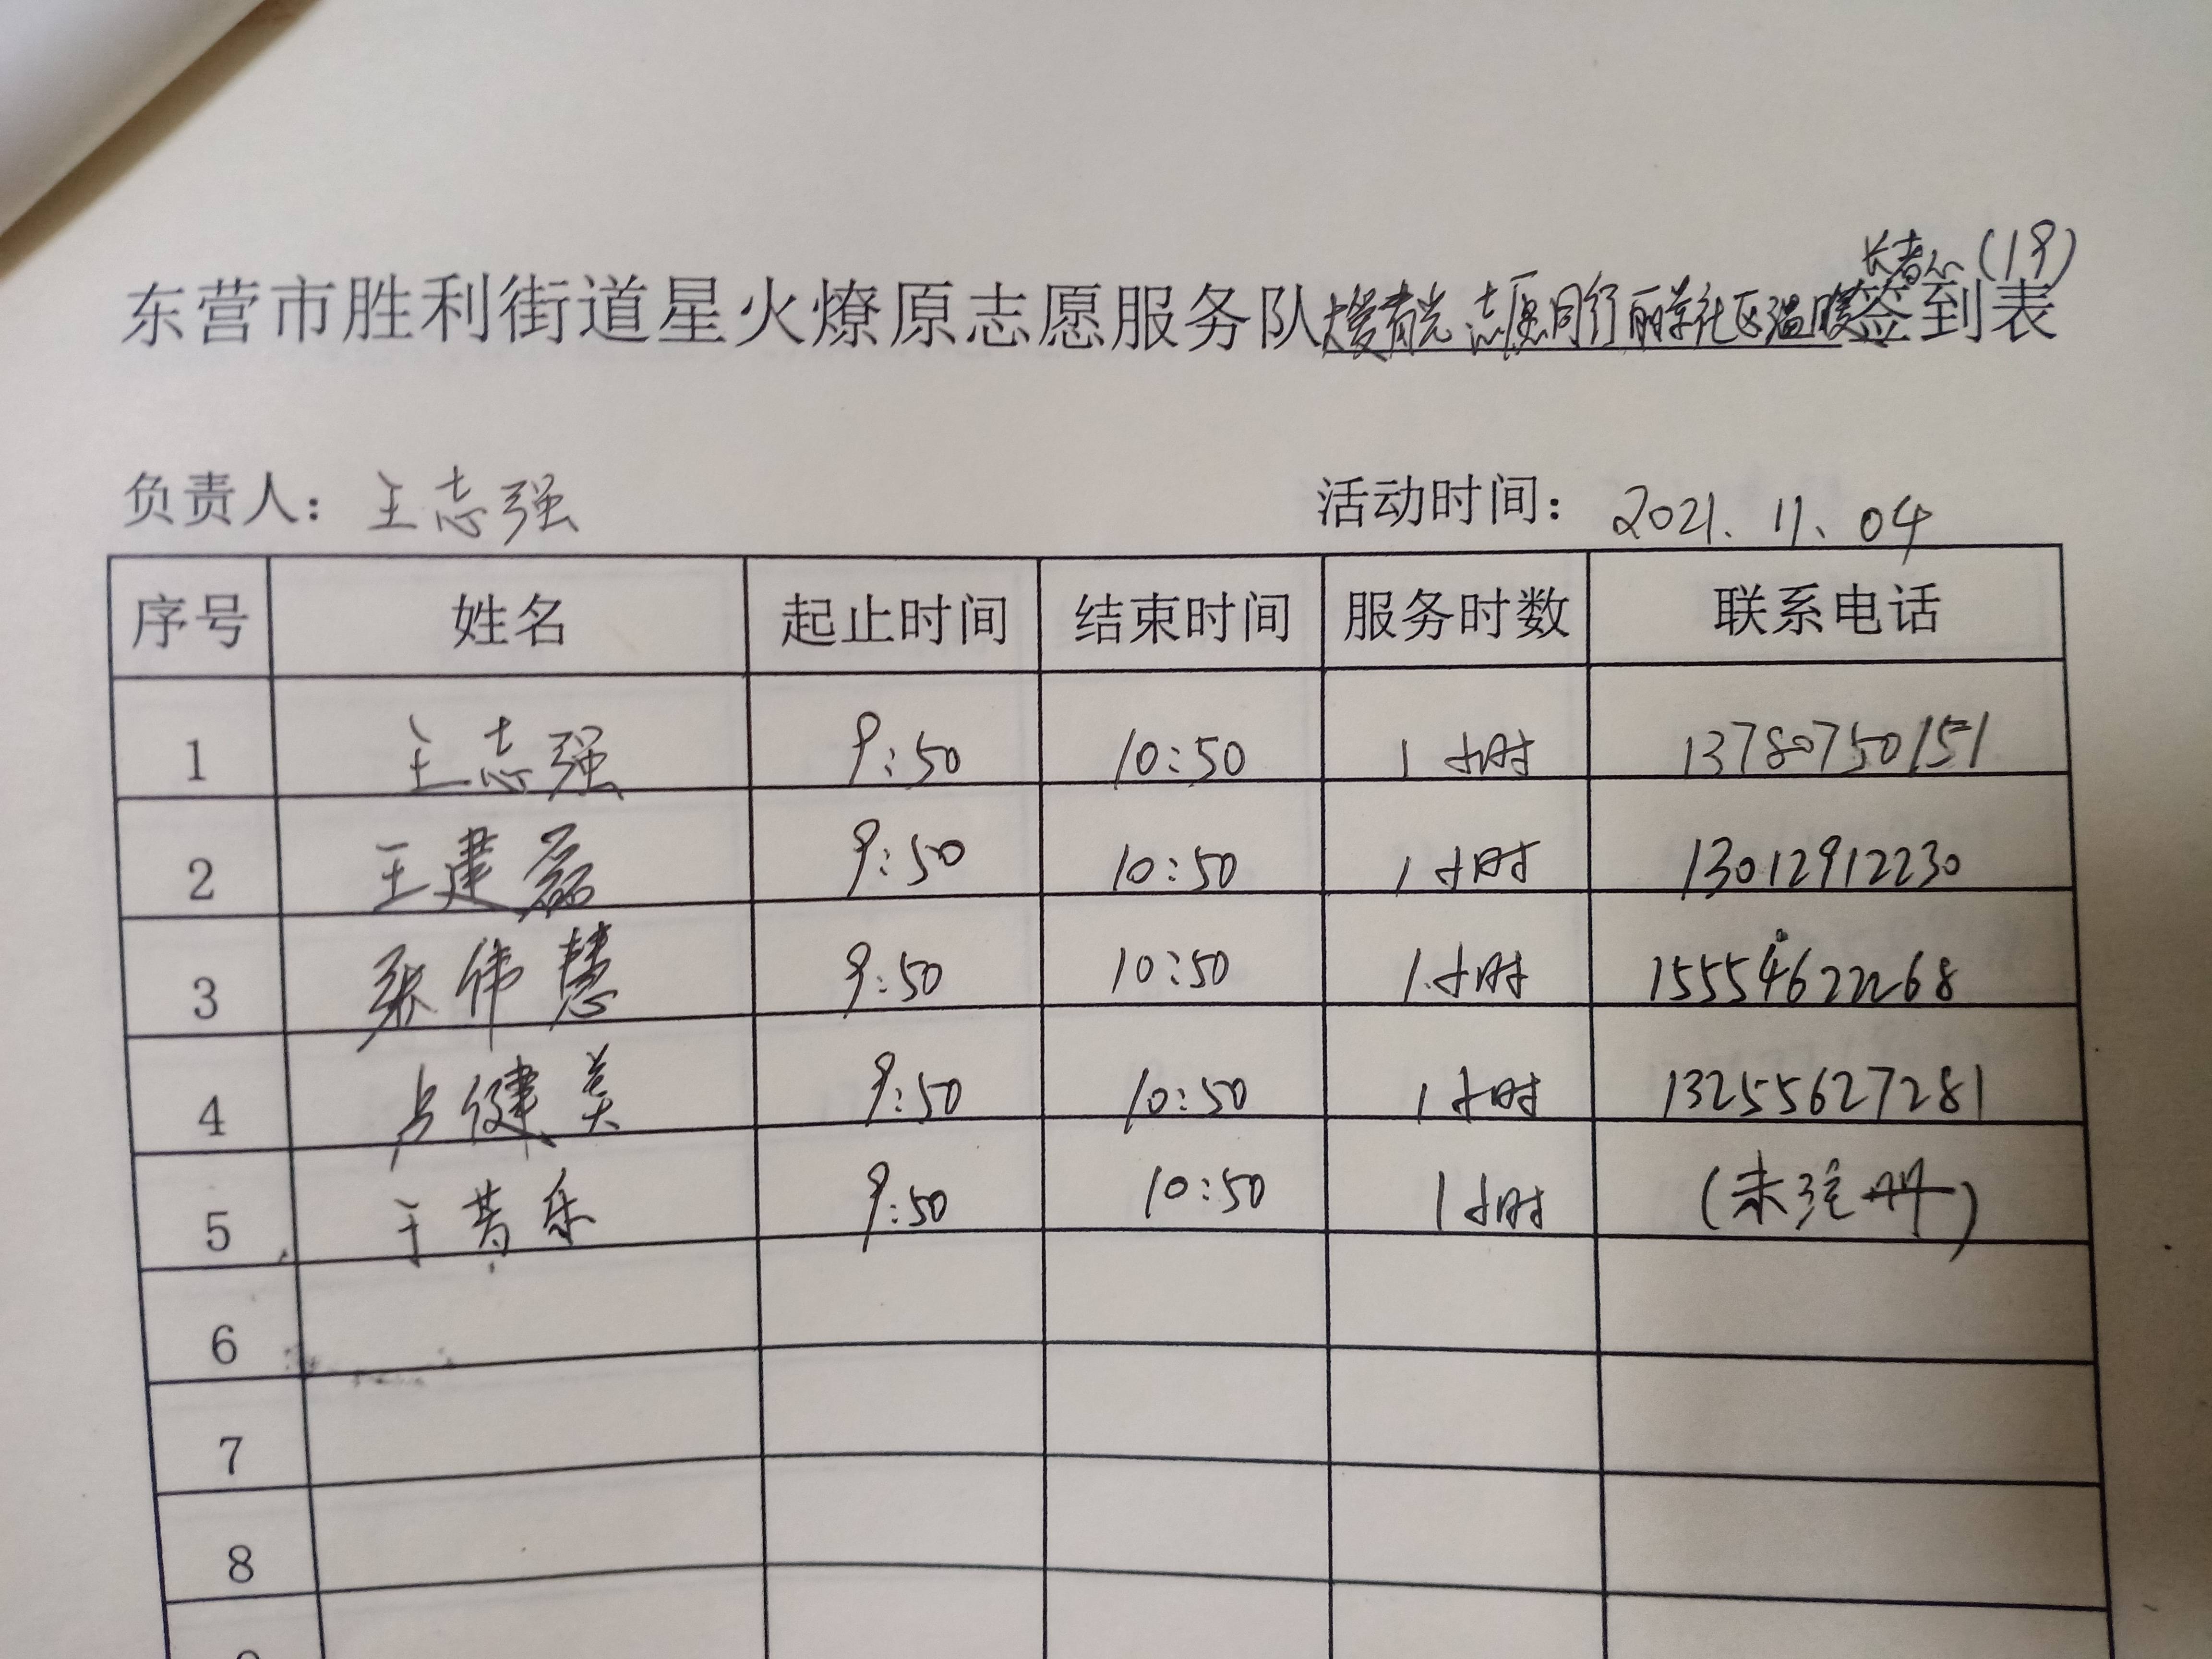 长者心(19)
东营市胜利街道星火燎原志愿服务队大爱青光 志愿同行 丽景社区温暖签到表
负责人: 王志强 活动时间: 2021.11.04
序号 姓名 起止时间 结束时间 服务时数 联系电话
1 王志强 9:50 10:50 1小时 13780750151
2 王建磊 9:50 10:50 1小时 13012912230
3 张伟慧 9:50 10:50 1小时 15554622268
4 占健美 9:50 10:50 1小时 13255627281
5 9:50 10:50 1小时 (未注册)
6
7
8